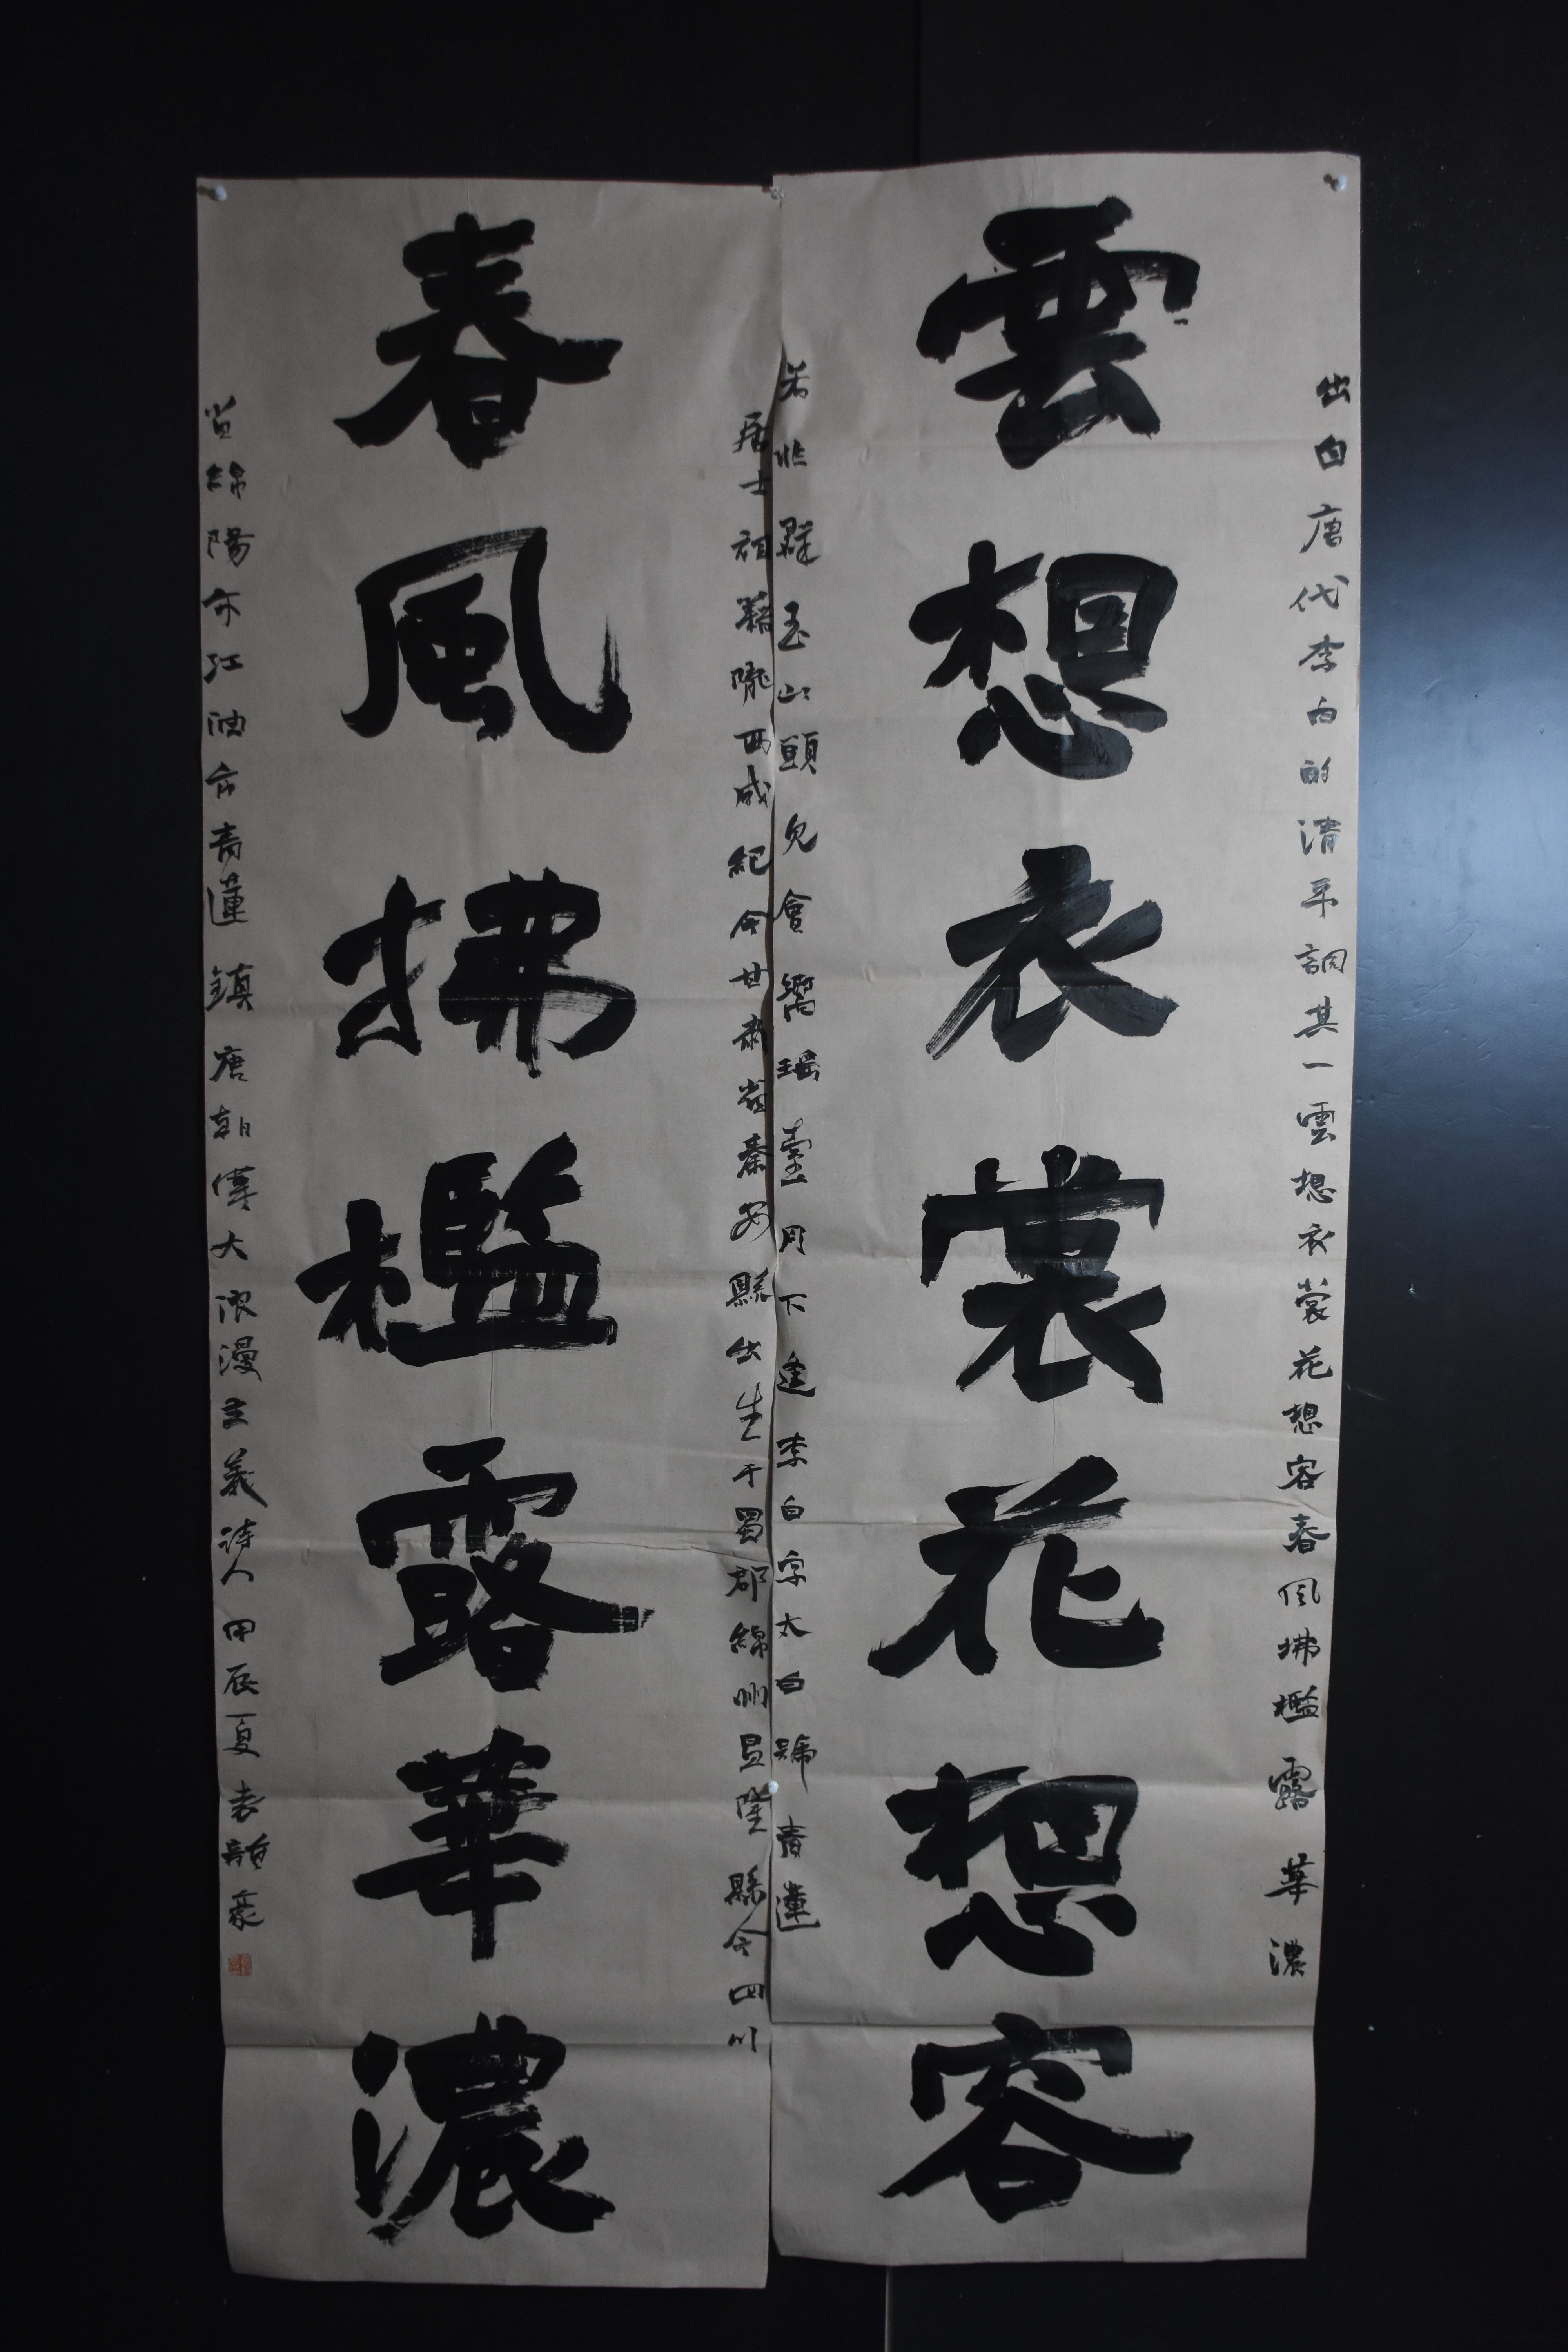 出自唐代李白的清平調其一雲想衣裳花想容春風拂檻露華濃
雲想衣裳花想容
若非群玉山頭見會嚮瑤臺月下逢李白字太白號青蓮
居士祖籍隴西成紀今甘肅省秦安縣出生于蜀郡綿州昌隆縣今四川
春風拂檻露華濃
省綿陽市江油市青蓮鎮唐朝偉大浪漫主義詩人甲辰夏袁韻豪